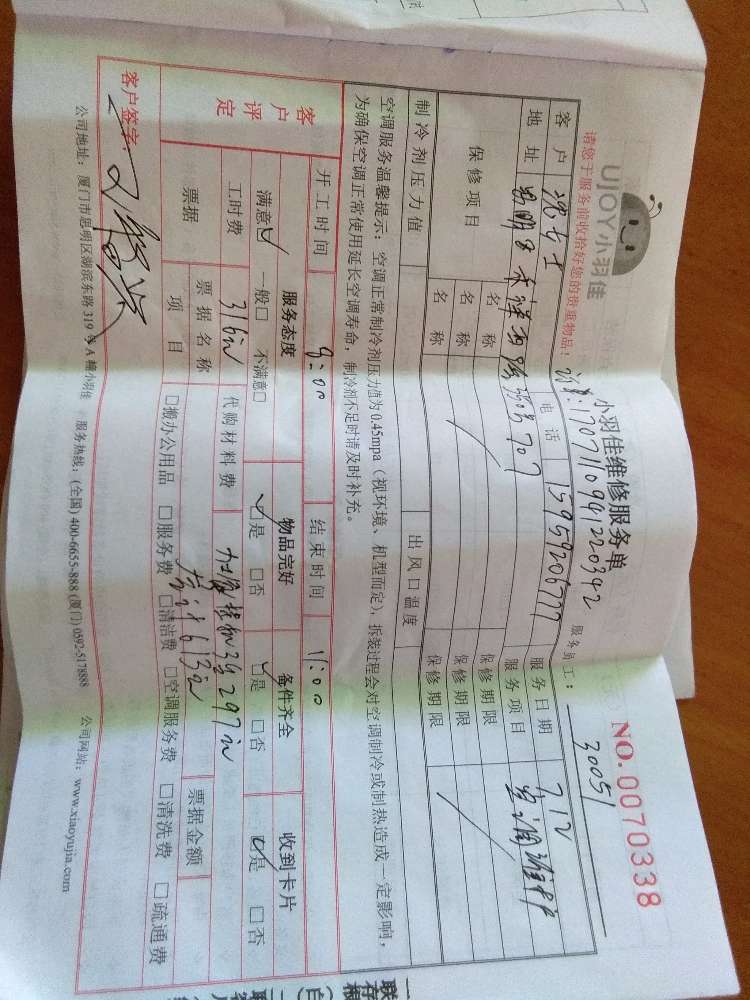 UJOY小羽佳
小羽佳维修服务单
NO.0070338
请您于服务前收拾好您的贵重物品!
服务员工: 30051
客户 电话 15959206777 服务日期 7.12
地址 707 服务项目 空调
保修项目 名称 保修期限
名称 保修期限
名称 保修期限
制冷剂压力值 出风口温度
空调服务温馨提示:空调正常制冷剂压力值为0.45mpa(视环境、机型而定),拆装过程会对空调制冷或制热造成一定影响,
为确保空调正常使用延长空调寿命,制冷剂不足时请及时补充。
客户评定
开工时间 9:00 结束时间 11:00
服务态度 物品完好 备件齐全 收到卡片
满意☑ 一般□ 不满意□ ☑是 □否 ☑是 □否 ☑是 □否
工时费 316元 代购材料费 297元
合计613元
票据 票据名称 票据金额
项目 □搬办公用品 □服务费 □清洁费 □空调服务费 □清洗费 □疏通费
客户签字:
公司地址:厦门市思明区湖滨东路319号A幢小羽佳 服务热线:(全国)400-6655-888(厦门)0592-5178888 公司网站:www.xiaoyujia.com